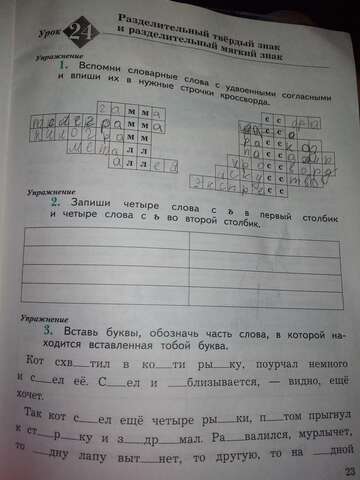 Урок 24
Разделительный твёрдый знак
и разделительный мягкий знак
Упражнение
1. Вспомни словарные слова с удвоенными согласными
и впиши их в нужные строчки кроссворда.
гамма
телеграмма
килограмм
металл
аллея
ссора
касса
рассказ
пассажир
искусство
Упражнение
2. Запиши четыре слова с ъ в первый столбик
и четыре слова с ь во второй столбик.
Упражнение
3. Вставь буквы, обозначь часть слова, в которой на-
ходится вставленная тобой буква.
Кот схв__тил в ко__ти ры__ку, поурчал немного
и с__ел её. С__ел и __близывается, — видно, ещё
хочет.
Так кот с__ел ещё четыре ры__ки, п__том прыгнул
к ст__р__ку и з__др__мал. Ра__валился, мурлычет,
то __дну лапу выт__нет, то другую, то на __дной
23